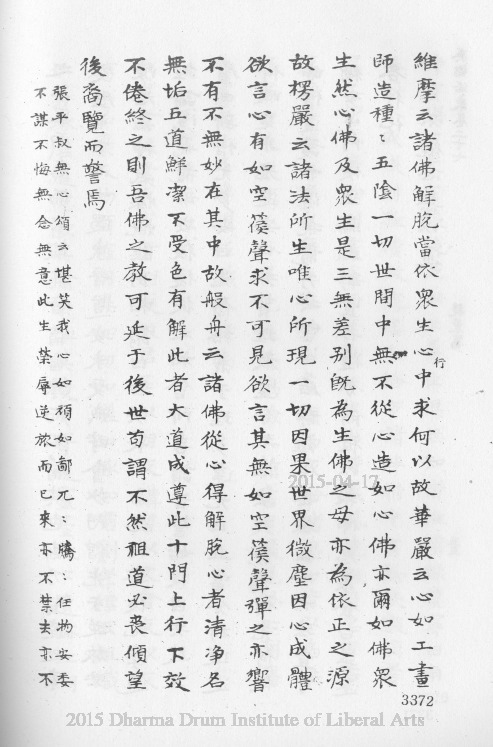 維摩云諸佛解脫當依眾生心行中求何以故華嚴云心如工畫
師造種〻五陰一切世間中無不從心造如心佛亦爾如佛眾
生然心佛及眾生是三無差别旣為生佛之母亦為依正之源
故楞嚴云諸法所生唯心所現一切因果世界微塵因心成體
欲言心有如空篌聲求不可見欲言其無如空篌聲彈之亦響
不有不無妙在其中故般舟云諸佛從心得解脫心者清净名
無垢五道鮮潔不受色有解此者大道成遵此十門上行下效
不倦終之則吾佛之教可延于後世苟謂不然祖道必喪傾望
後裔覽而警焉
張平叔無心頌云堪笑我心如頑如鄙兀〻騰〻任物安委
不謀不悔無念無意此生榮辱逆旅而已來亦不禁去亦不
3372
2015-04-17
2015 Dharma Drum Institute of Liberal Arts